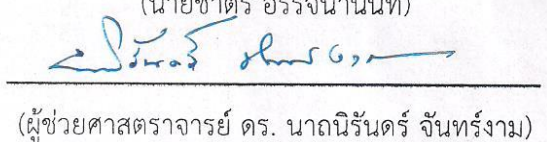 (นายชาตรี อรรจนานันท์)
(ผู้ช่วยศาสตราจารย์ ดร. นาถนิรันดร์ จันทร์งาม)